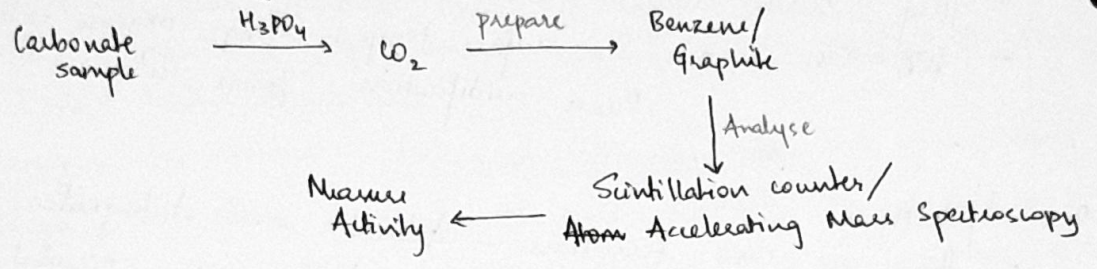 Carbonate sample
H₃PO₄
CO₂
prepare
Benzene/
Graphite
Analyse
Scintillation counter/
Atom Accelerating Mass Spectroscopy
Measure
Activity